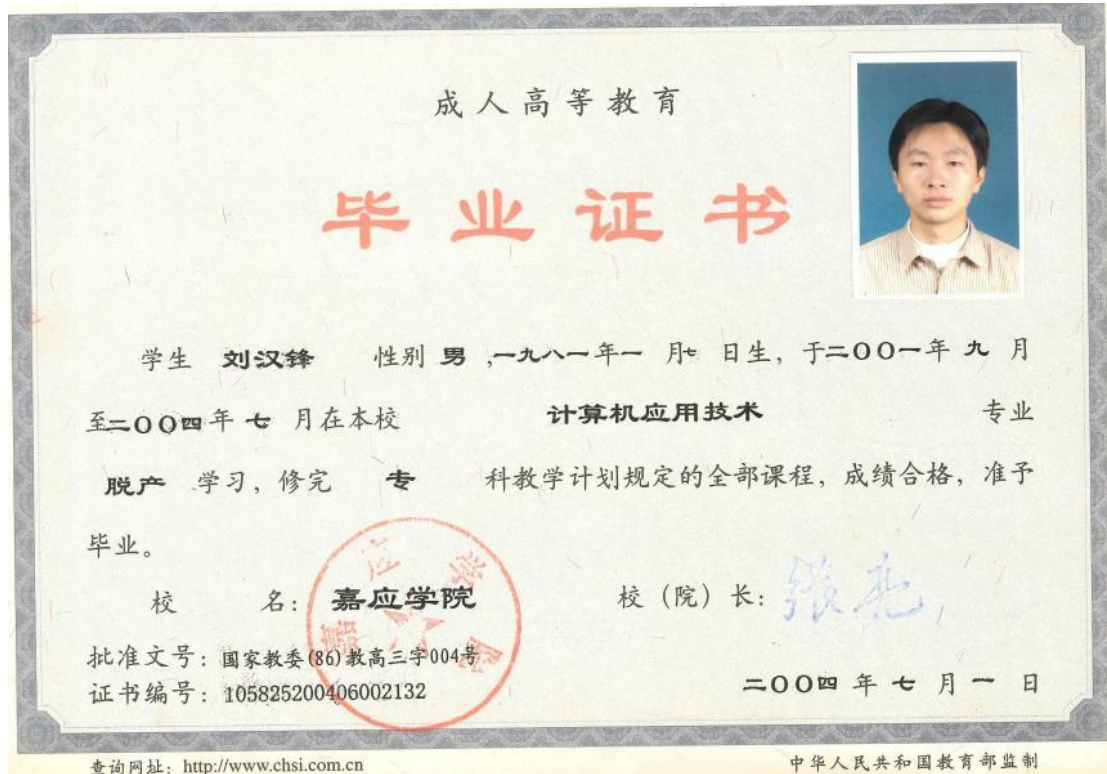 成人高等教育
毕业证书
学生 刘汉锋 性别 男 ,一九八一年一 月七 日生，于二〇〇一年 九 月
至二〇〇四年 七 月在本校 计算机应用技术 专业
脱产 学习，修完 专 科教学计划规定的全部课程，成绩合格，准予
毕业。
校 名：嘉应学院 校（院）长：张亮
嘉应学院
批准文号：国家教委(86)教高三字004号
证书编号：105825200406002132 二〇〇四 年 七 月 一 日
查询网址：http://www.chsi.com.cn 中华人民共和国教育部监制